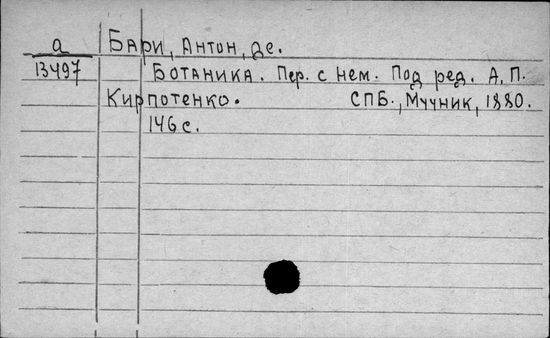 а Бари, Антон, де.
13497 Ботаника. Пер. с нем. Под ред. А. П.
Кирпотенко. СПБ., Мучник, 1880.
146 с.